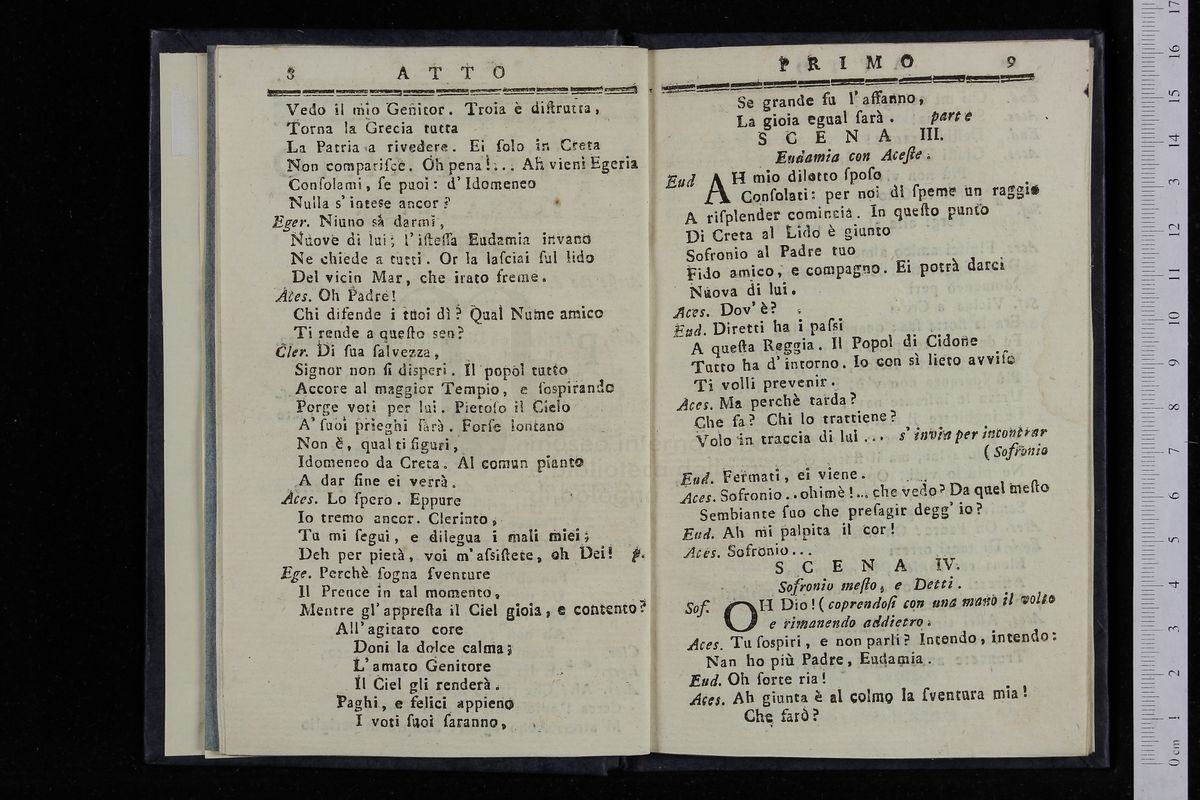 8 ATTO
Vedo il mio Genitor. Troia è diſtrutta,
Torna la Grecia tutta
La Patria a rivedere. Ei ſolo in Creta
Non compariſce. Oh pena!... Ah vieni Egeria
Conſolami, ſe puoi: d'Idomeneo
Nulla s'intese ancor?
Eger. Niuno sà darmi,
Nuove di lui; l'iſteſſa Eudamia invano
Ne chiede a tutti. Or la laſciai ſul lido
Del vicin Mar, che irato freme.
Aces. Oh Padre!
Chi difende i tuoi dì? Qual Nume amico
Ti rende a queſto sen?
Cler. Di ſua ſalvezza,
Signor non ſi disperi. Il popol tutto
Accore al maggior Tempio, e ſospirando
Porge voti per lui. Pietoſo il Cielo
A' ſuoi prieghi ſarà. Forſe lontano
Non è, qual ti figuri,
Idomeneo da Creta. Al comun pianto
A dar fine ei verrà.
Aces. Lo ſpero. Eppure
Io tremo ancor. Clerinto,
Tu mi ſegui, e dilegua i mali miei;
Deh per pietà, voi m'aſsiſtete, oh Dei! p.
Ege. Perchè ſogna ſventure
Il Prence in tal momento,
Mentre gl'appreſta il Ciel gioia, e contento?
All'agitato core
Doni la dolce calma;
L'amato Genitore
Il Ciel gli renderà.
Paghi, e felici appieno
I voti ſuoi ſaranno,
PRIMO 9
Se grande fu l'affanno,
La gioia egual ſarà. parte
SCENA III.
Eudamia con Aceſte.
Eud AH mio diletto ſpoſo
Conſolati: per noi di ſpeme un raggio
A riſplender comincia. In queſto punto
Di Creta al Lido è giunto
Sofronio al Padre tuo
Fido amico, e compagno. Ei potrà darci
Nuova di lui.
Aces. Dov'è?
Eud. Diretti ha i paſsi
A queſta Reggia. Il Popol di Cidone
Tutto ha d'intorno. Io con sì lieto avviſo
Ti volli prevenir.
Aces. Ma perchè tarda?
Che fa? Chi lo trattiene?
Volo in traccia di lui... s'invia per incontrar
(Sofronio
Eud. Fermati, ei viene.
Aces. Sofronio.. ohimè!... che vedo? Da quel meſto
Sembiante ſuo che preſagir degg'io?
Eud. Ah mi palpita il cor!
Aces. Sofronio...
SCENA IV.
Sofronio meſto, e Detti.
Sof. OH Dio! (coprendoſi con una mano il volto
e rimanendo addietro.
Aces. Tu ſospiri, e non parli? Intendo, intendo:
Nan ho più Padre, Eudamia.
Eud. Oh ſorte ria!
Aces. Ah giunta è al colmo la ſventura mia!
Che farò?